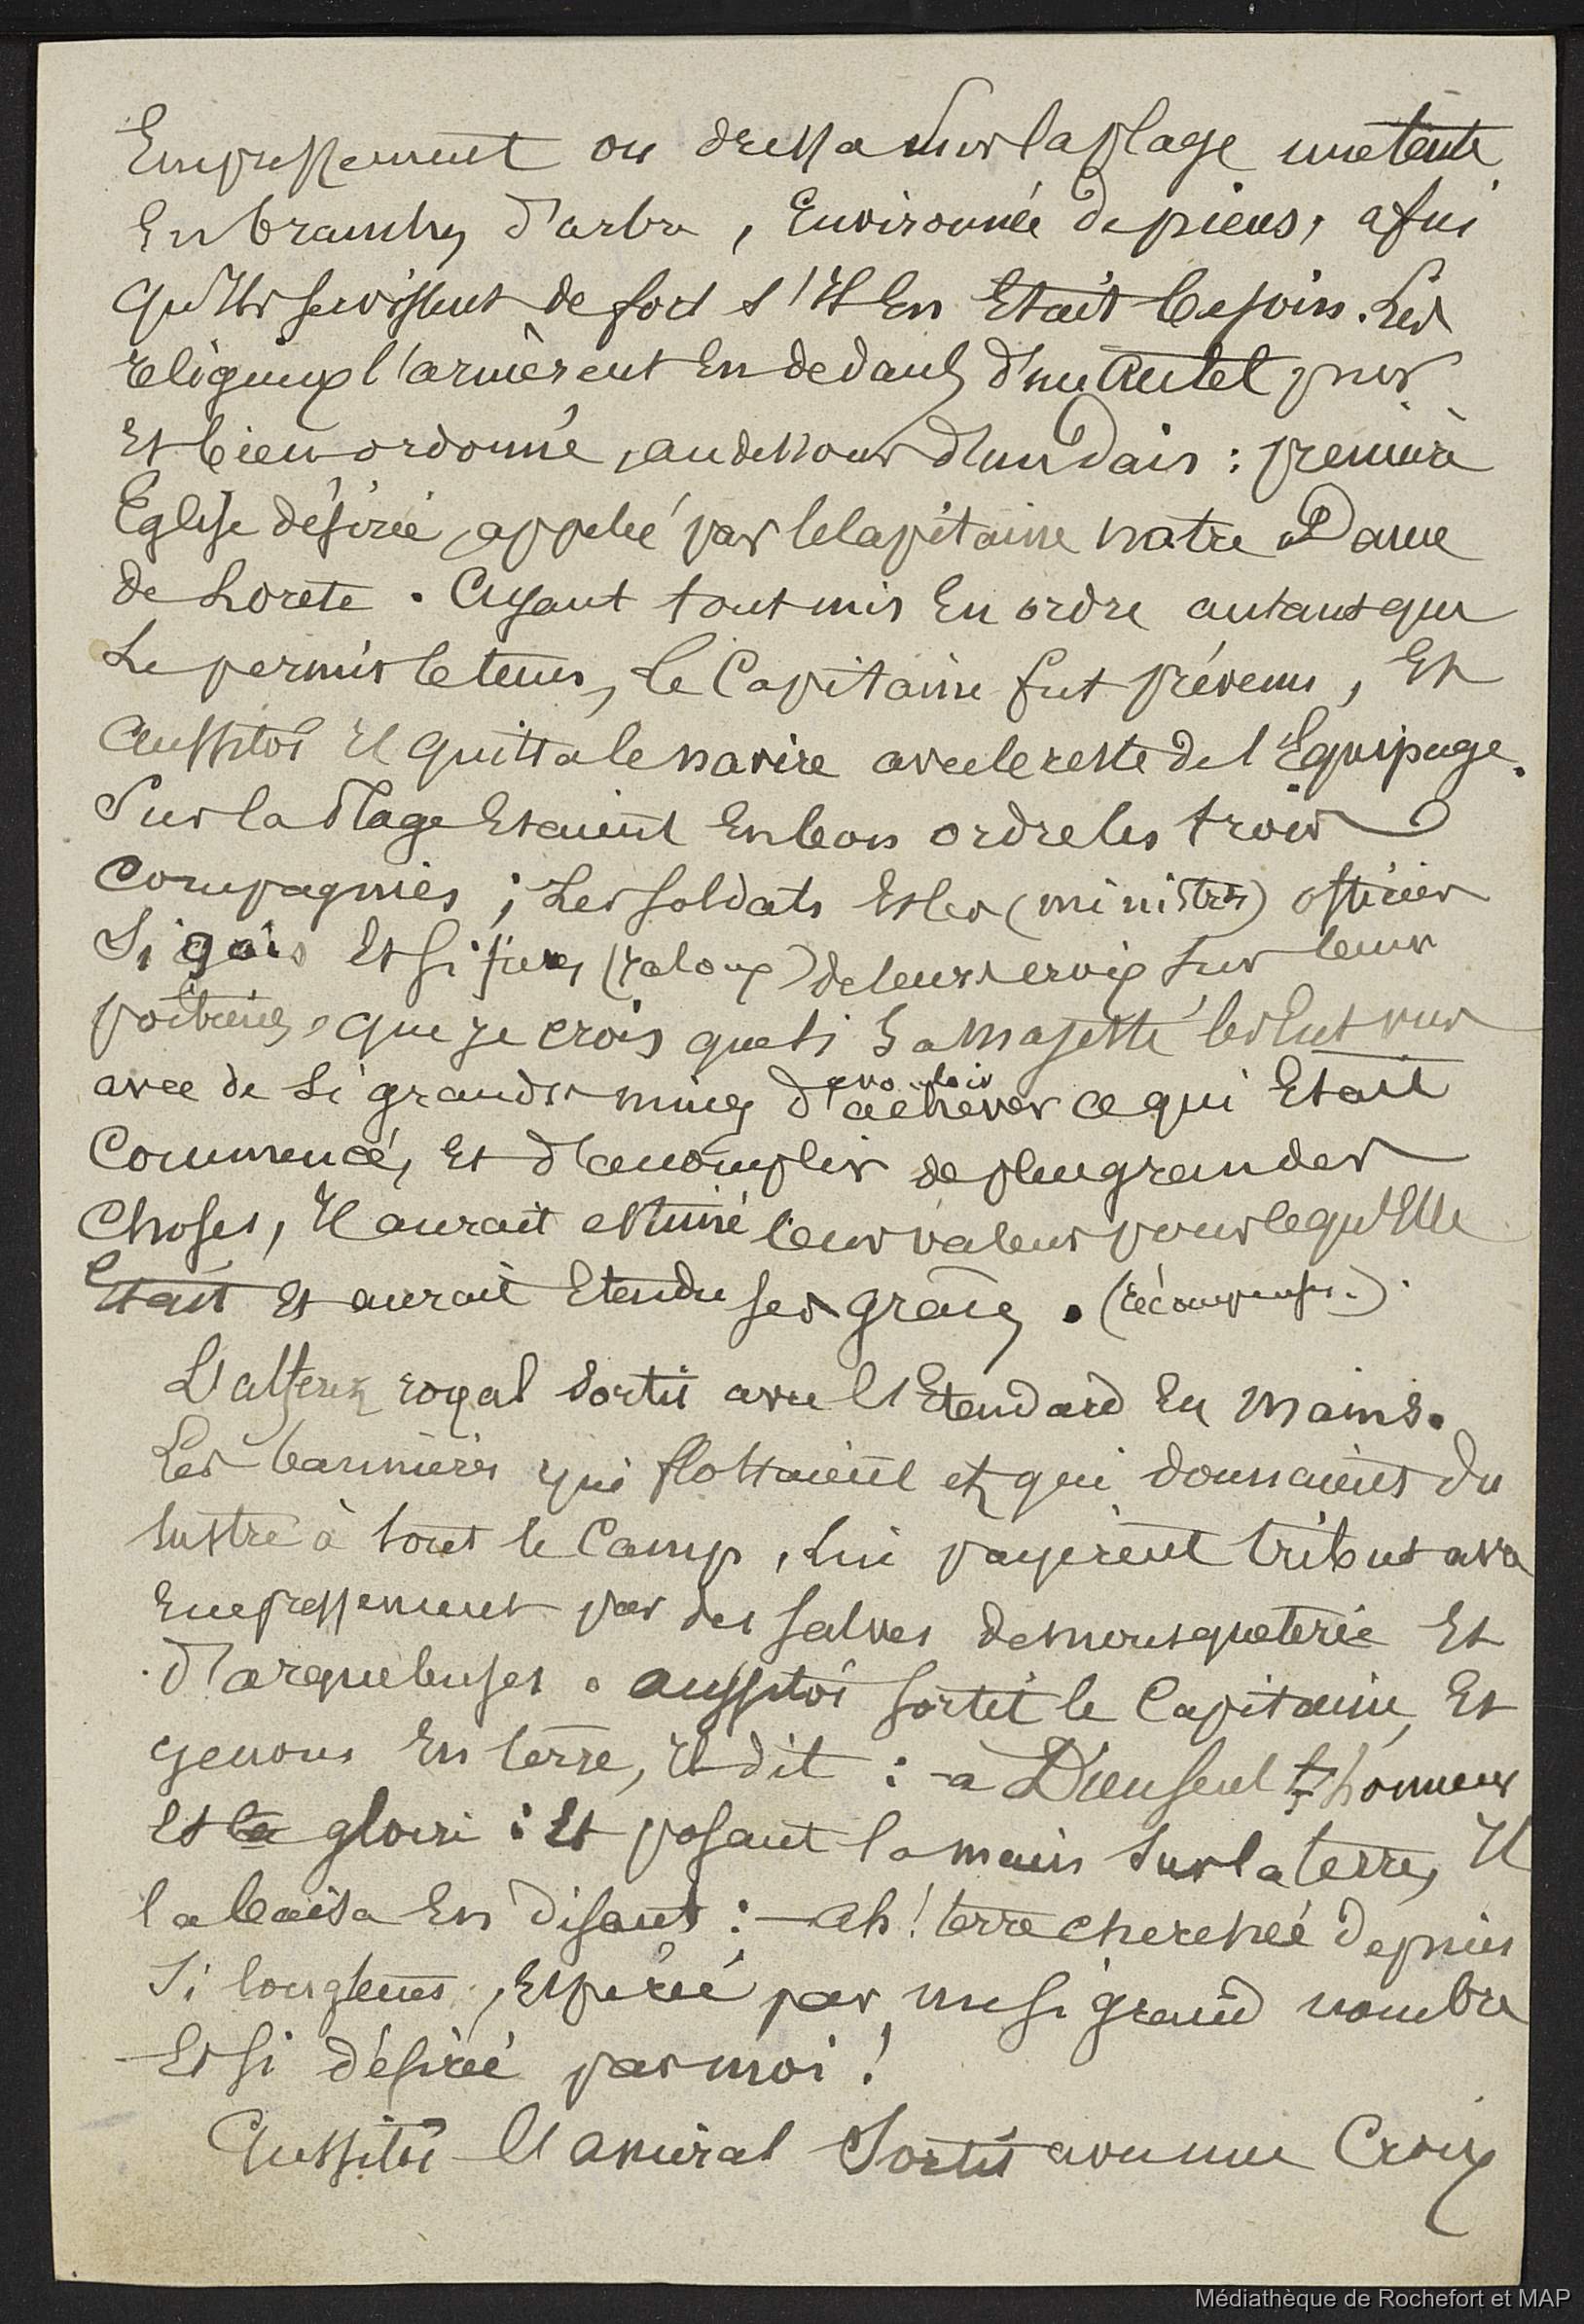 Empressement on dressa sur la plage une tente
En branches d'arbre, Environnée de pieus, afin
qu'Ils servissent de fort s'Il En Etait besoin. Les
religieux l'ornèrent En dedans d'un Autel pur
Et bien ordonné, au dessous d'un Dais : première
Eglise désirée, appelée par le Capitaine notre Dame
de Lorete. Ayant tout mis En ordre autant que
Le permis le tems, le Capitaine fut prévenu, Et
Aussitôt Il quitta le navire avec le reste de l'Equipage.
Sur la Plage Etaient En bon ordre les trois
Compagnies ; Les soldats Et les (ministres) officiers
Si gais Et si fiers (jaloux) de leurs croix sur leurs
poitrines, que je crois que si Sa Majesté les Eut vus
avec de si grandes mines d'avoir
achever ce qui Etait
Commencé, Et d'accomplir de plus grandes
Choses, Il aurait estimé leur valeur pour ce qu'Elle
Etait Et aurait Etendu ses grâces. (récompenses.)
L'alferez royal Sortit avec l'Etendard En mains.
Les bannières qui flottaient et qui donnaient du
lustre à tout le Camp, Lui payèrent tribut avec
Empressement par des salves de mousqueterie Et
d'arquebuses. aussitôt sortit le Capitaine, Et
genoux En terre, Il dit : - à Dieu seul l'honneur
Et la gloire : Et posant la main sur la terre, Il
la baisa En disant : - ah ! terre cherchée depuis
Si longtems, Espérée par un si grand nombre
Et si désirée par moi !
Aussitôt l'amiral Sortit avec une Croix
Médiathèque de Rochefort et MAP